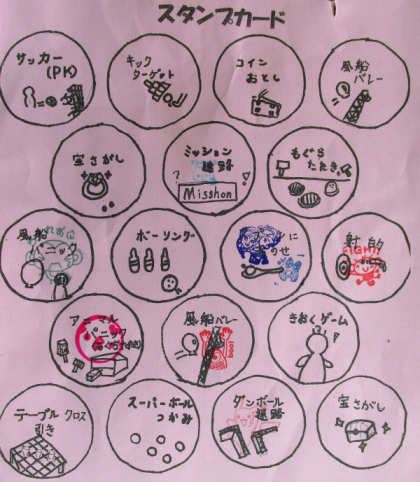 スタンプカード
サッカー
(PK)
キック
ターゲット
コイン
おとし
風船
バレー
宝さがし
ミッション
迷路
Misshon
もぐら
たたき
風船
ボーリング
に
のせ
射的
風船バレー
きおくゲーム
テーブルクロス
引き
スーパーボール
つかみ
ダンボール
迷路
宝さがし